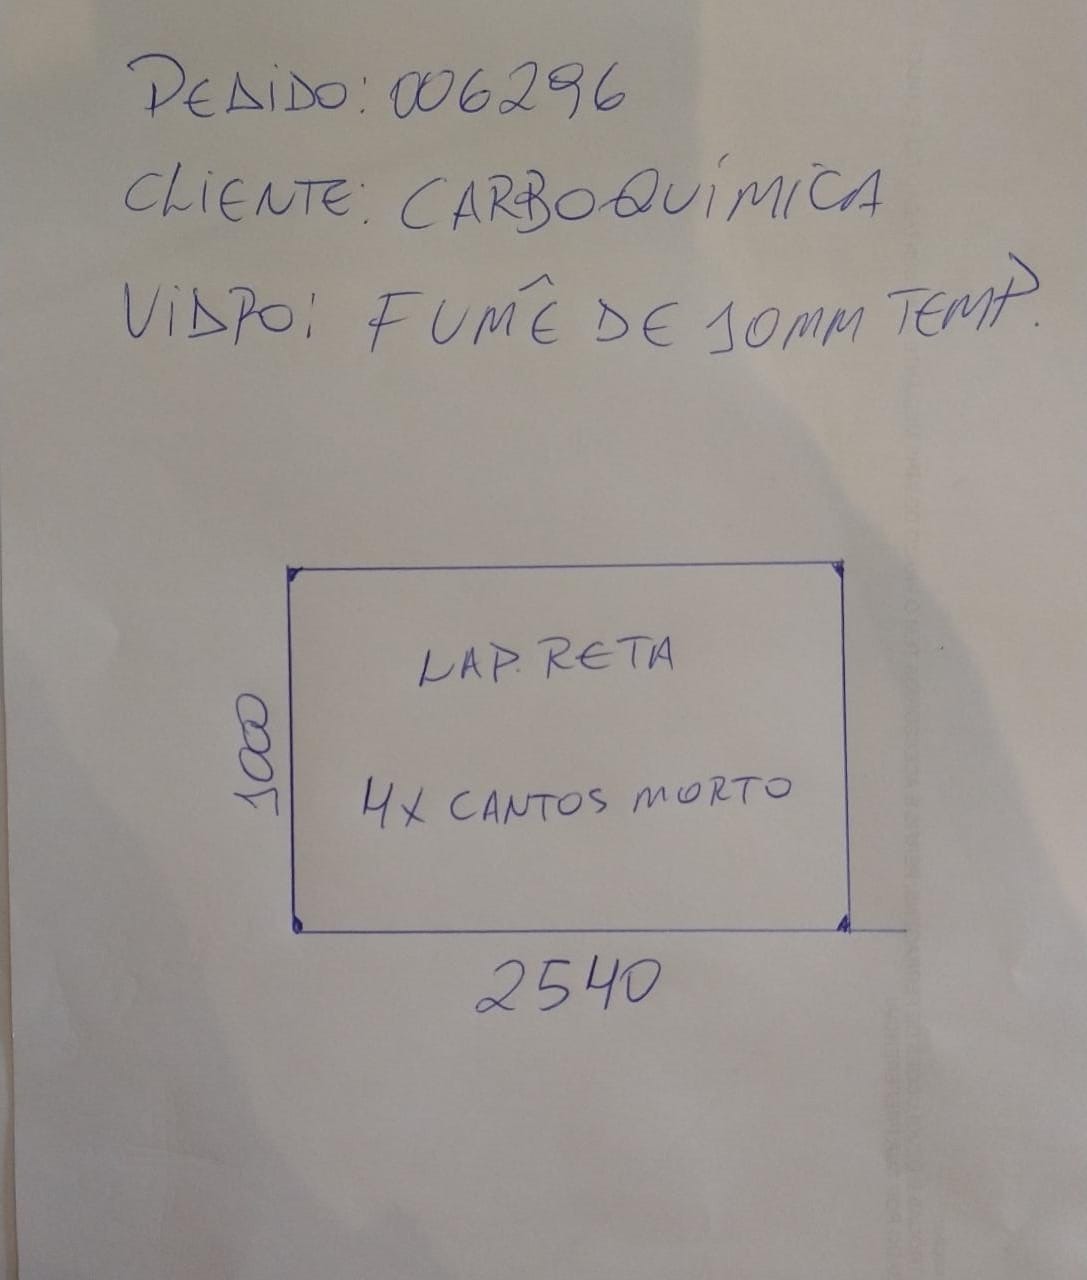 PEDIDO: 006296
CLIENTE: CARBOQUÍMICA
VIDRO: FUMÊ DE 10MM TEMP.
LAP. RETA
1000
4X CANTOS MORTO
2540